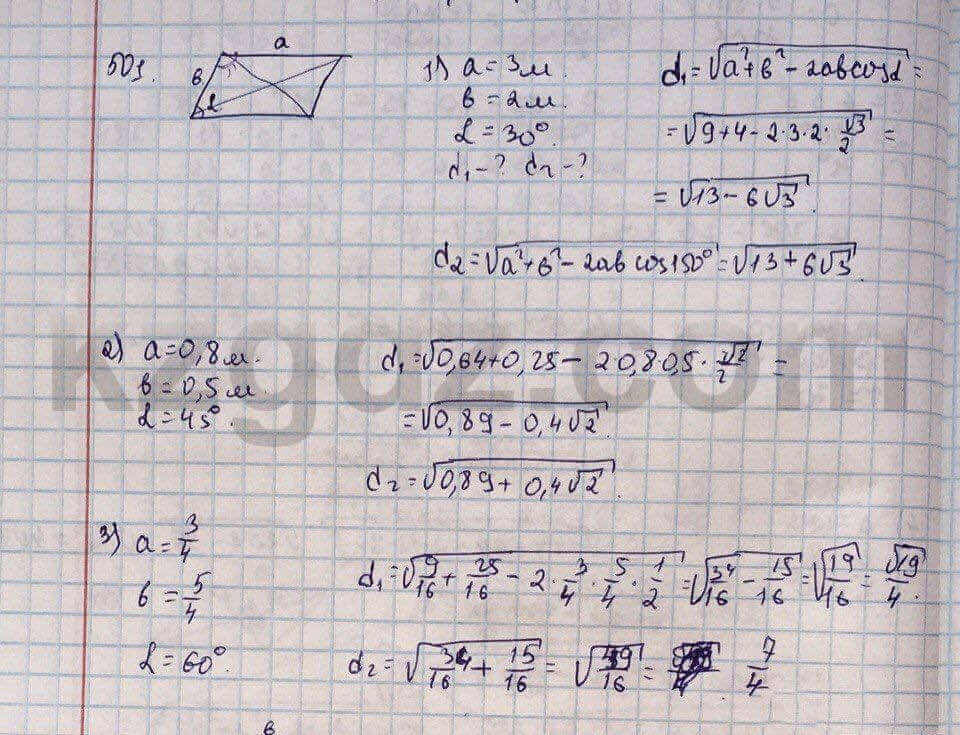 501.
a
в
α
1) a = 3 м.
в = 2 м.
α = 30°.
d₁ - ? d₂ - ?
d₁ = √(a² + в² - 2ab cosα) =
= √(9 + 4 - 2·3·2·√3/2) =
= √(13 - 6√3).
d₂ = √(a² + в² - 2ab cos150°) = √(13 + 6√3).
kzgdz.com
2) a = 0,8 м.
в = 0,5 м.
α = 45°.
d₁ = √(0,64 + 0,25 - 2 0,8 0,5 · √2/2) =
= √(0,89 - 0,4√2).
d₂ = √(0,89 + 0,4√2).
3) a = 3/4
в = 5/4
α = 60°.
d₁ = √(9/16 + 25/16 - 2 · 3/4 · 5/4 · 1/2) = √(34/16 - 15/16) = √(19/16) = √19/4.
d₂ = √(34/16 + 15/16) = √(49/16) = 7/4
в